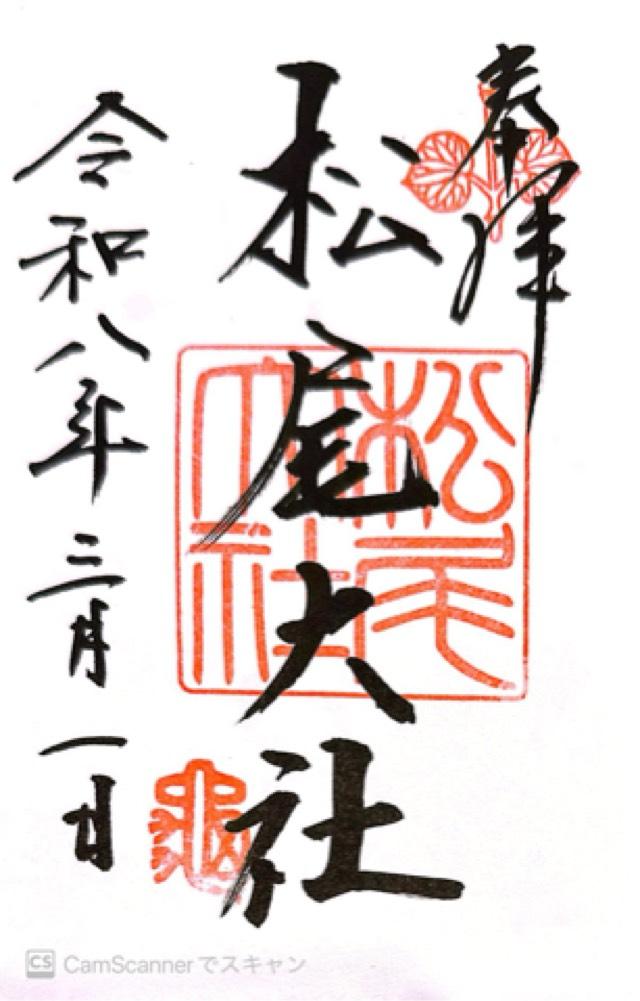 奉拝
松尾大社
令和八年三月一日
松尾大社
CS CamScannerでスキャン